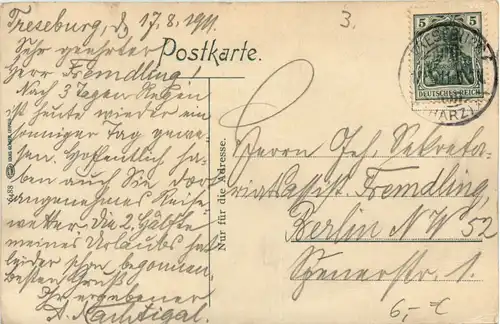 Treseburg, d. 17.8.1911.
3.
Postkarte.
Sehr geehrter
Herr Fremdling!
Nach 3 Tagen Regen
ist heute wieder ein
sonniger Tag gewe-
sen. Hoffentlich ha-
ben auch Sie dort
angenehmes Reise
wetter. Die 2. Hälfte
meines Urlaubs hat
leider schon begonnen.
Besten Gruß!
Ihr ergebener
A. Nachtigal.
Nur für die Adresse.
5 5
DEUTSCHES REICH
TRESEBURG
(HARZ)
Herrn Geh. Sekreta-
riatsassist. Fremdling,
Berlin NW 52
Spenerstr. 1.
6,- €